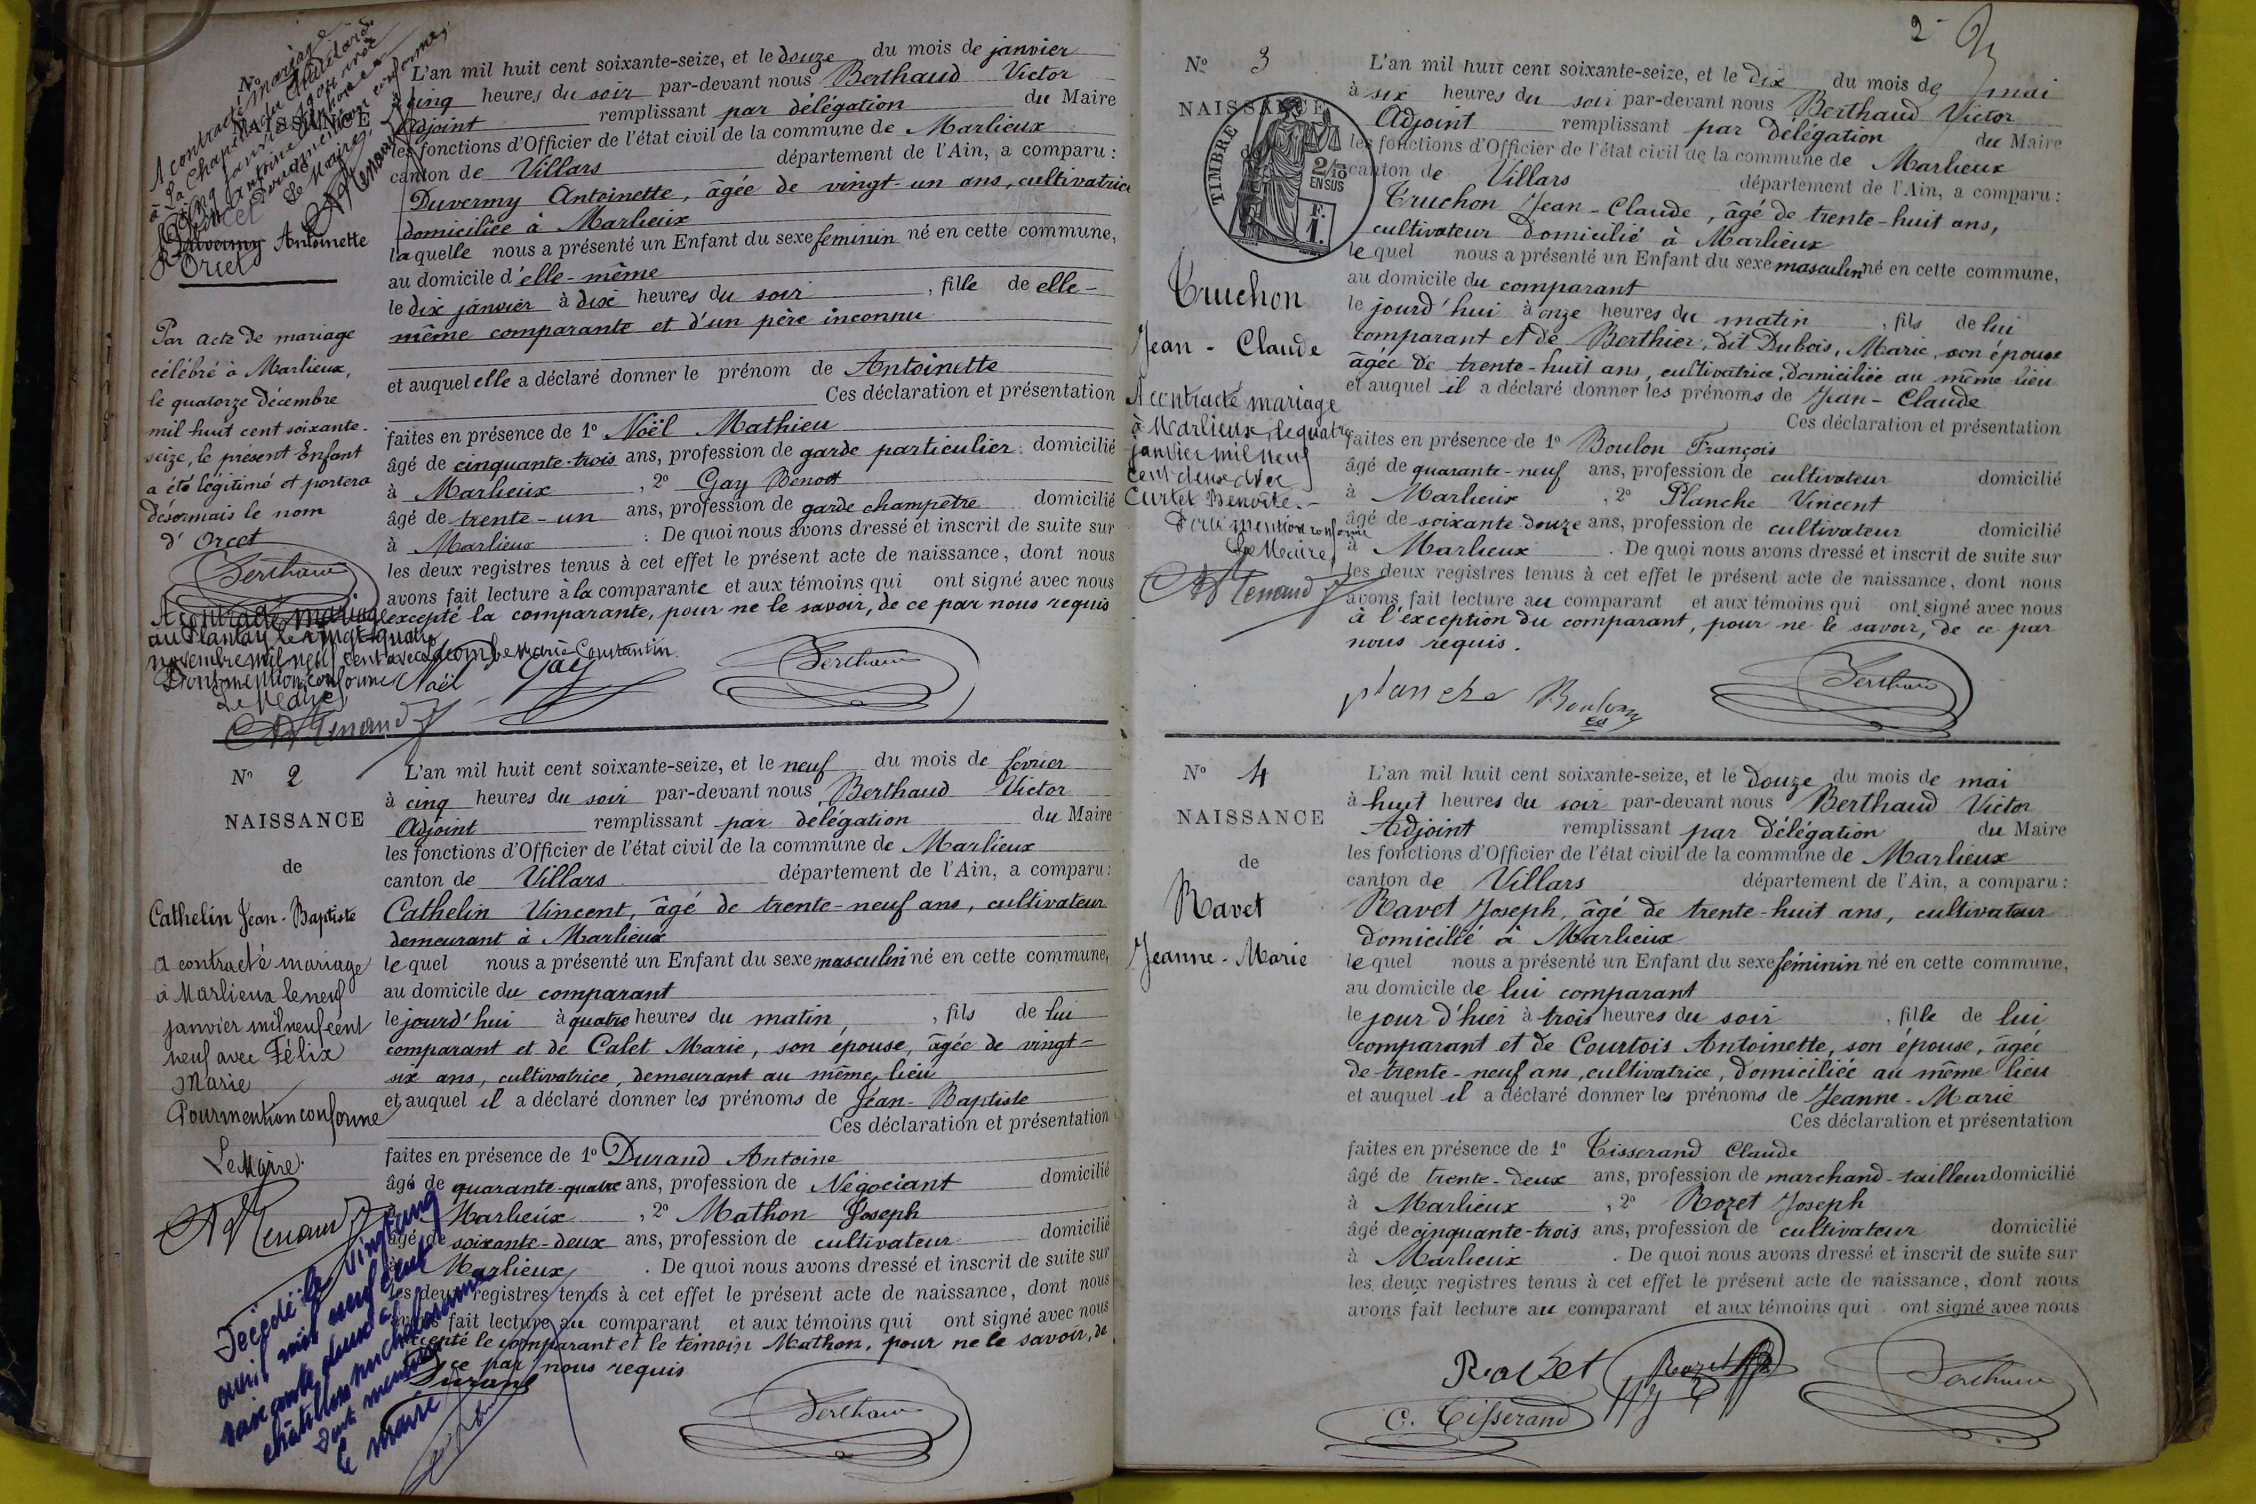 No
NAISSANCE
A contracté mariage
à La Chapelle du Châtelard
Le Maire,
Duvermy Antoinette
Orcet
L'an mil huit cent soixante-seize, et le douze du mois de janvier
à cinq heures du soir par-devant nous Berthaud Victor
Adjoint remplissant par délégation du Maire
les fonctions d'Officier de l'état civil de la commune de Marlieux
canton de Villars département de l'Ain, a comparu :
Duvermy Antoinette, âgée de vingt-un ans, cultivatrice
domiciliée à Marlieux
laquelle nous a présenté un Enfant du sexe féminin né en cette commune,
au domicile d'elle-même
le dix janvier à dix heures du soir, fille de elle-
même comparante et d'un père inconnu
et auquel elle a déclaré donner le prénom de Antoinette
Ces déclaration et présentation
faites en présence de 1° Noël Mathieu
âgé de cinquante-trois ans, profession de garde particulier domicilié
à Marlieux, 2° Gay Benoit
âgé de trente-un ans, profession de garde champêtre domicilié
à Marlieux. De quoi nous avons dressé et inscrit de suite sur
les deux registres tenus à cet effet le présent acte de naissance, dont nous
avons fait lecture à la comparante et aux témoins qui ont signé avec nous
excepté la comparante, pour ne le savoir, de ce par nous requis
Noël Gay Berthaud
Par acte de mariage
célébré à Marlieux,
le quatorze décembre
mil huit cent soixante-
seize, le présent Enfant
a été légitimé et portera
désormais le nom
d'Orcet
Berthaud
A contracté mariage
au Plantay le vingt quatre
novembre mil neuf cent avec Lacombe Marie Constantin
Pour mention conforme
Le Maire
No 2
NAISSANCE
de
Cathelin Jean-Baptiste
A contracté mariage
à Marlieux le neuf
janvier mil neuf cent
neuf avec Félix
Marie
Pour mention conforme
Le Maire.
Décédé le vingt cinq
avril mil neuf cent
soixante deux à
châtillon sur chalaronne
Dont mention
le maire
L'an mil huit cent soixante-seize, et le neuf du mois de février
à cinq heures du soir par-devant nous Berthaud Victor
Adjoint remplissant par délégation du Maire
les fonctions d'Officier de l'état civil de la commune de Marlieux
canton de Villars département de l'Ain, a comparu :
Cathelin Vincent, âgé de trente-neuf ans, cultivateur
demeurant à Marlieux
lequel nous a présenté un Enfant du sexe masculin né en cette commune,
au domicile du comparant
le jourd'hui à quatre heures du matin, fils de lui
comparant et de Calet Marie, son épouse, âgée de vingt-
six ans, cultivatrice, demeurant au même lieu
et auquel il a déclaré donner les prénoms de Jean-Baptiste
Ces déclaration et présentation
faites en présence de 1° Durand Antoine
âgé de quarante-quatre ans, profession de Négociant domicilié
à Marlieux, 2° Mathon Joseph
âgé de soixante-deux ans, profession de cultivateur domicilié
à Marlieux. De quoi nous avons dressé et inscrit de suite sur
les deux registres tenus à cet effet le présent acte de naissance, dont nous
avons fait lecture au comparant et aux témoins qui ont signé avec nous
excepté le comparant et le témoin Mathon, pour ne le savoir, de
ce par nous requis
Durand
Berthaud
2
No 3
NAISSANCE
TIMBRE
2/10 EN SUS
F. 1.
Truchon
Jean-Claude
A contracté mariage
à Marlieux, le quatre
janvier mil neuf
cent deux avec
Curtet Benoite.
Pour mention conforme
Le Maire
L'an mil huit cent soixante-seize, et le dix du mois de mai
à six heures du soir par-devant nous Berthaud Victor
Adjoint remplissant par délégation du Maire
les fonctions d'Officier de l'état civil de la commune de Marlieux
canton de Villars département de l'Ain, a comparu :
Truchon Jean-Claude, âgé de trente-huit ans,
cultivateur domicilié à Marlieux
lequel nous a présenté un Enfant du sexe masculin né en cette commune,
au domicile du comparant
le jourd'hui à onze heures du matin, fils de lui
comparant et de Berthier, dit Dubois, Marie, son épouse
âgée de trente-huit ans, cultivatrice, domiciliée au même lieu
et auquel il a déclaré donner les prénoms de Jean-Claude
Ces déclaration et présentation
faites en présence de 1° Boulon François
âgé de quarante-neuf ans, profession de cultivateur domicilié
à Marlieux, 2° Planche Vincent
âgé de soixante-douze ans, profession de cultivateur domicilié
à Marlieux. De quoi nous avons dressé et inscrit de suite sur
les deux registres tenus à cet effet le présent acte de naissance, dont nous
avons fait lecture au comparant et aux témoins qui ont signé avec nous
à l'exception du comparant, pour ne le savoir, de ce par
nous requis.
planche Boulon Berthaud
No 4
NAISSANCE
de
Ravet
Jeanne-Marie
L'an mil huit cent soixante-seize, et le douze du mois de mai
à huit heures du soir par-devant nous Berthaud Victor
Adjoint remplissant par délégation du Maire
les fonctions d'Officier de l'état civil de la commune de Marlieux
canton de Villars département de l'Ain, a comparu :
Ravet Joseph, âgé de trente-huit ans, cultivateur
domicilié à Marlieux
lequel nous a présenté un Enfant du sexe féminin né en cette commune,
au domicile de lui comparant
le jour d'hier à trois heures du soir, fille de lui
comparant et de Courtois Antoinette, son épouse, âgée
de trente-neuf ans, cultivatrice, domiciliée au même lieu
et auquel il a déclaré donner les prénoms de Jeanne-Marie
Ces déclaration et présentation
faites en présence de 1° Tisserand Claude
âgé de trente-deux ans, profession de marchand-tailleur domicilié
à Marlieux, 2° Rozet Joseph
âgé de cinquante-trois ans, profession de cultivateur domicilié
à Marlieux. De quoi nous avons dressé et inscrit de suite sur
les deux registres tenus à cet effet le présent acte de naissance, dont nous
avons fait lecture au comparant et aux témoins qui ont signé avec nous
Rozet Berthaud
C. Tisserand